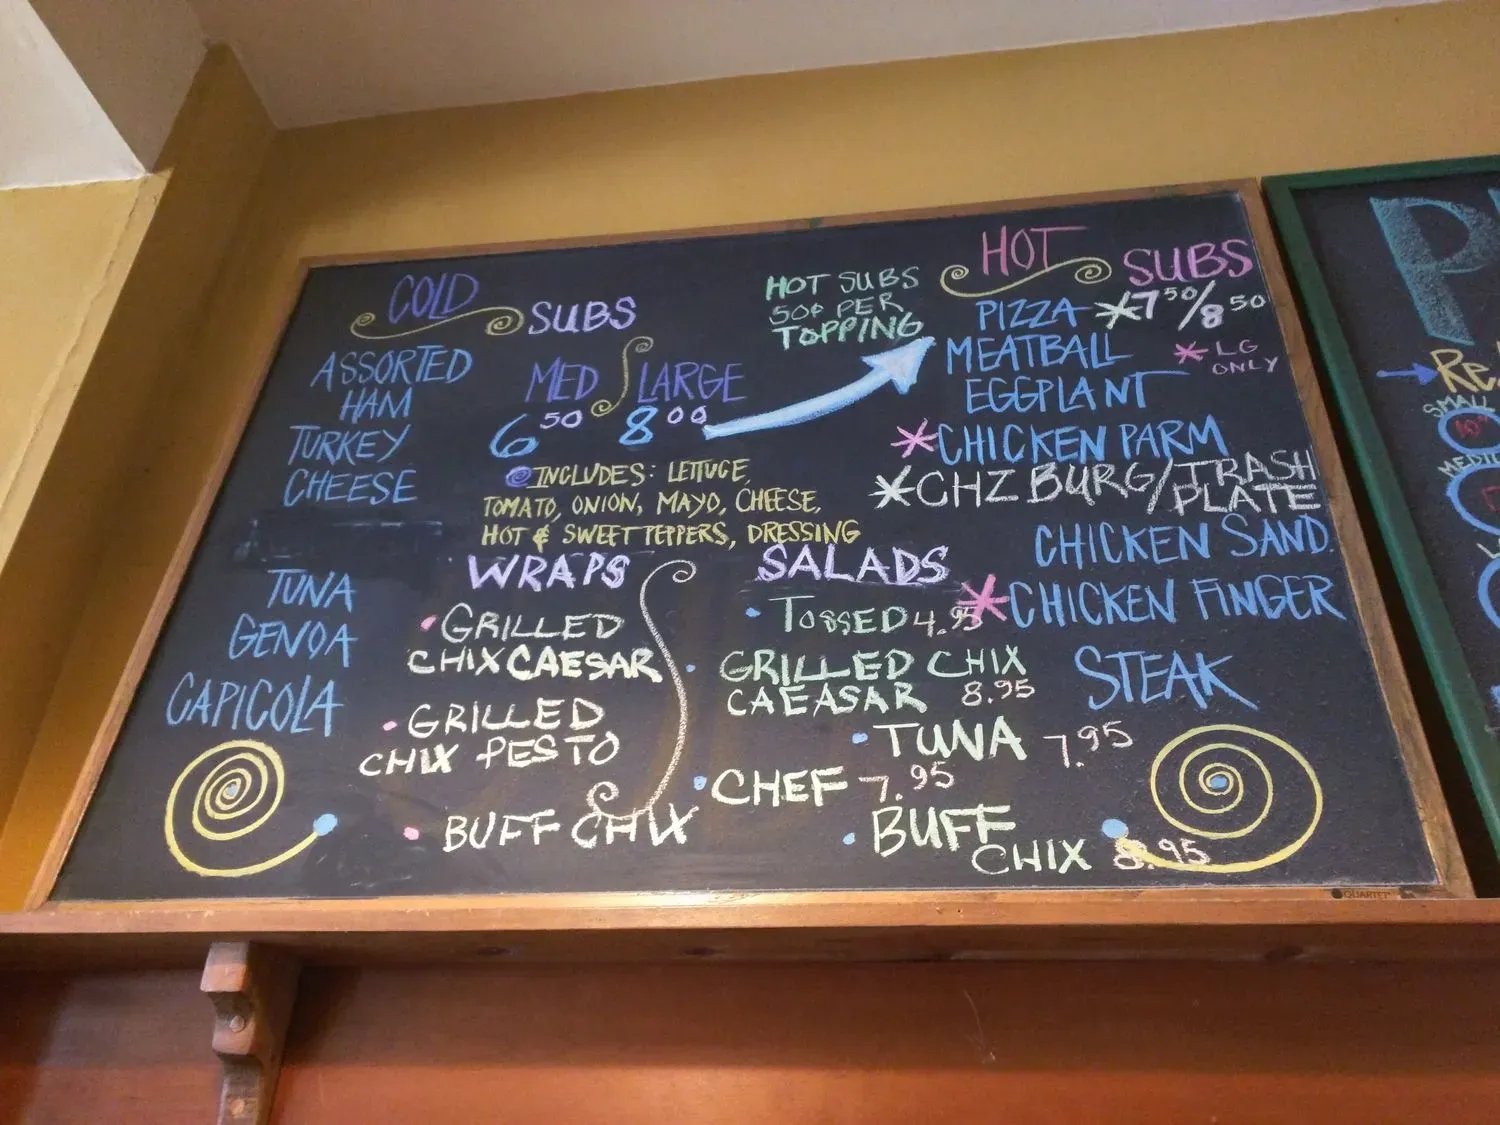 COLD
SUBS
ASSORTED
HAM
TURKEY
CHEESE
TUNA
GENOA
CAPICOLA
MED LARGE
6 50 8 00
INCLUDES: LETTUCE,
TOMATO, ONION, MAYO, CHEESE,
HOT & SWEET PEPPERS, DRESSING
WRAPS
GRILLED
CHIX CAESAR
GRILLED
CHIX PESTO
BUFF CHIX
SALADS
TOSSED 4.95
GRILLED CHIX
CAEASAR 8.95
TUNA 7.95
CHEF 7.95
BUFF
CHIX 8.95
HOT SUBS
50¢ PER
TOPPING
HOT
SUBS
PIZZA *7 50/8 50
MEATBALL
* LG
ONLY
EGGPLANT
*CHICKEN PARM
*CHZ BURG/TRASH
PLATE
CHICKEN SAND.
*CHICKEN FINGER
STEAK
QUARTET
SMALL